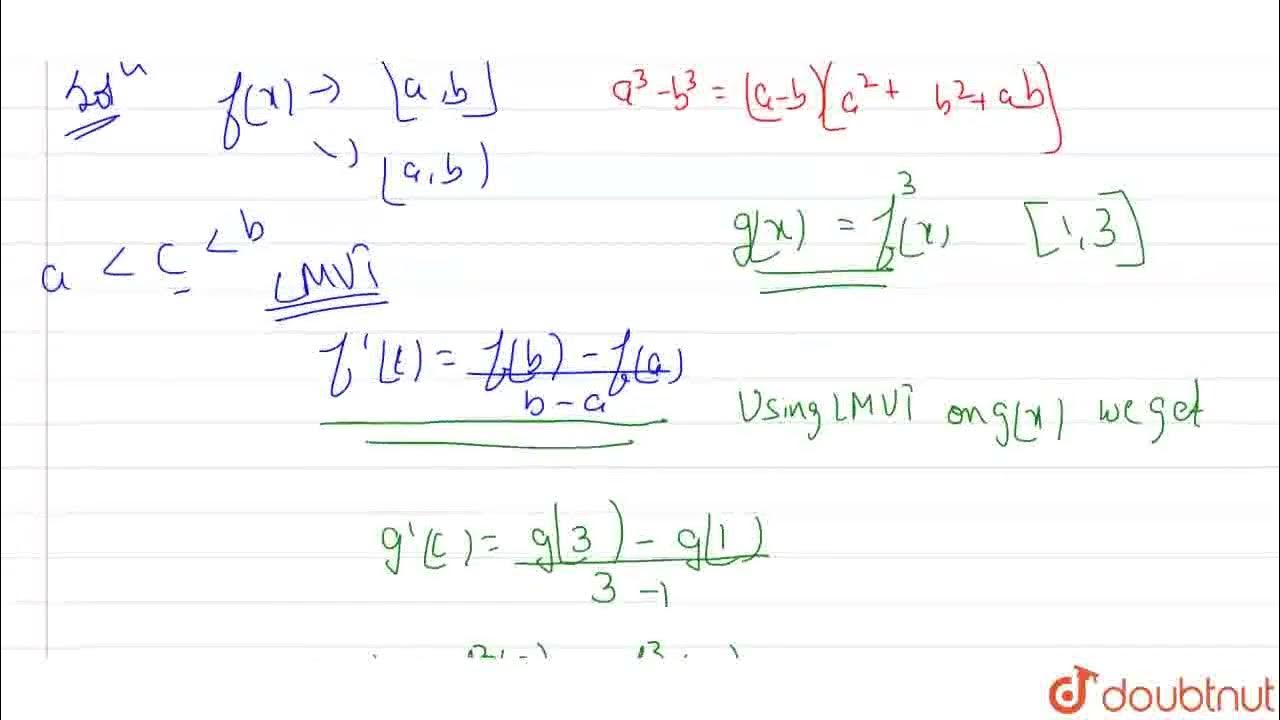 Solⁿ f(x) → [a, b] a³-b³ = (a-b)(a²+ b²+ab)
↘ (a, b)
g(x) = f³(x) [1,3]
a < c < b LMVT
f'(c) = f(b) - f(a) / b-a
Using LMVT on g(x) we get
g'(c) = g(3) - g(1) / 3 -1
doubtnut